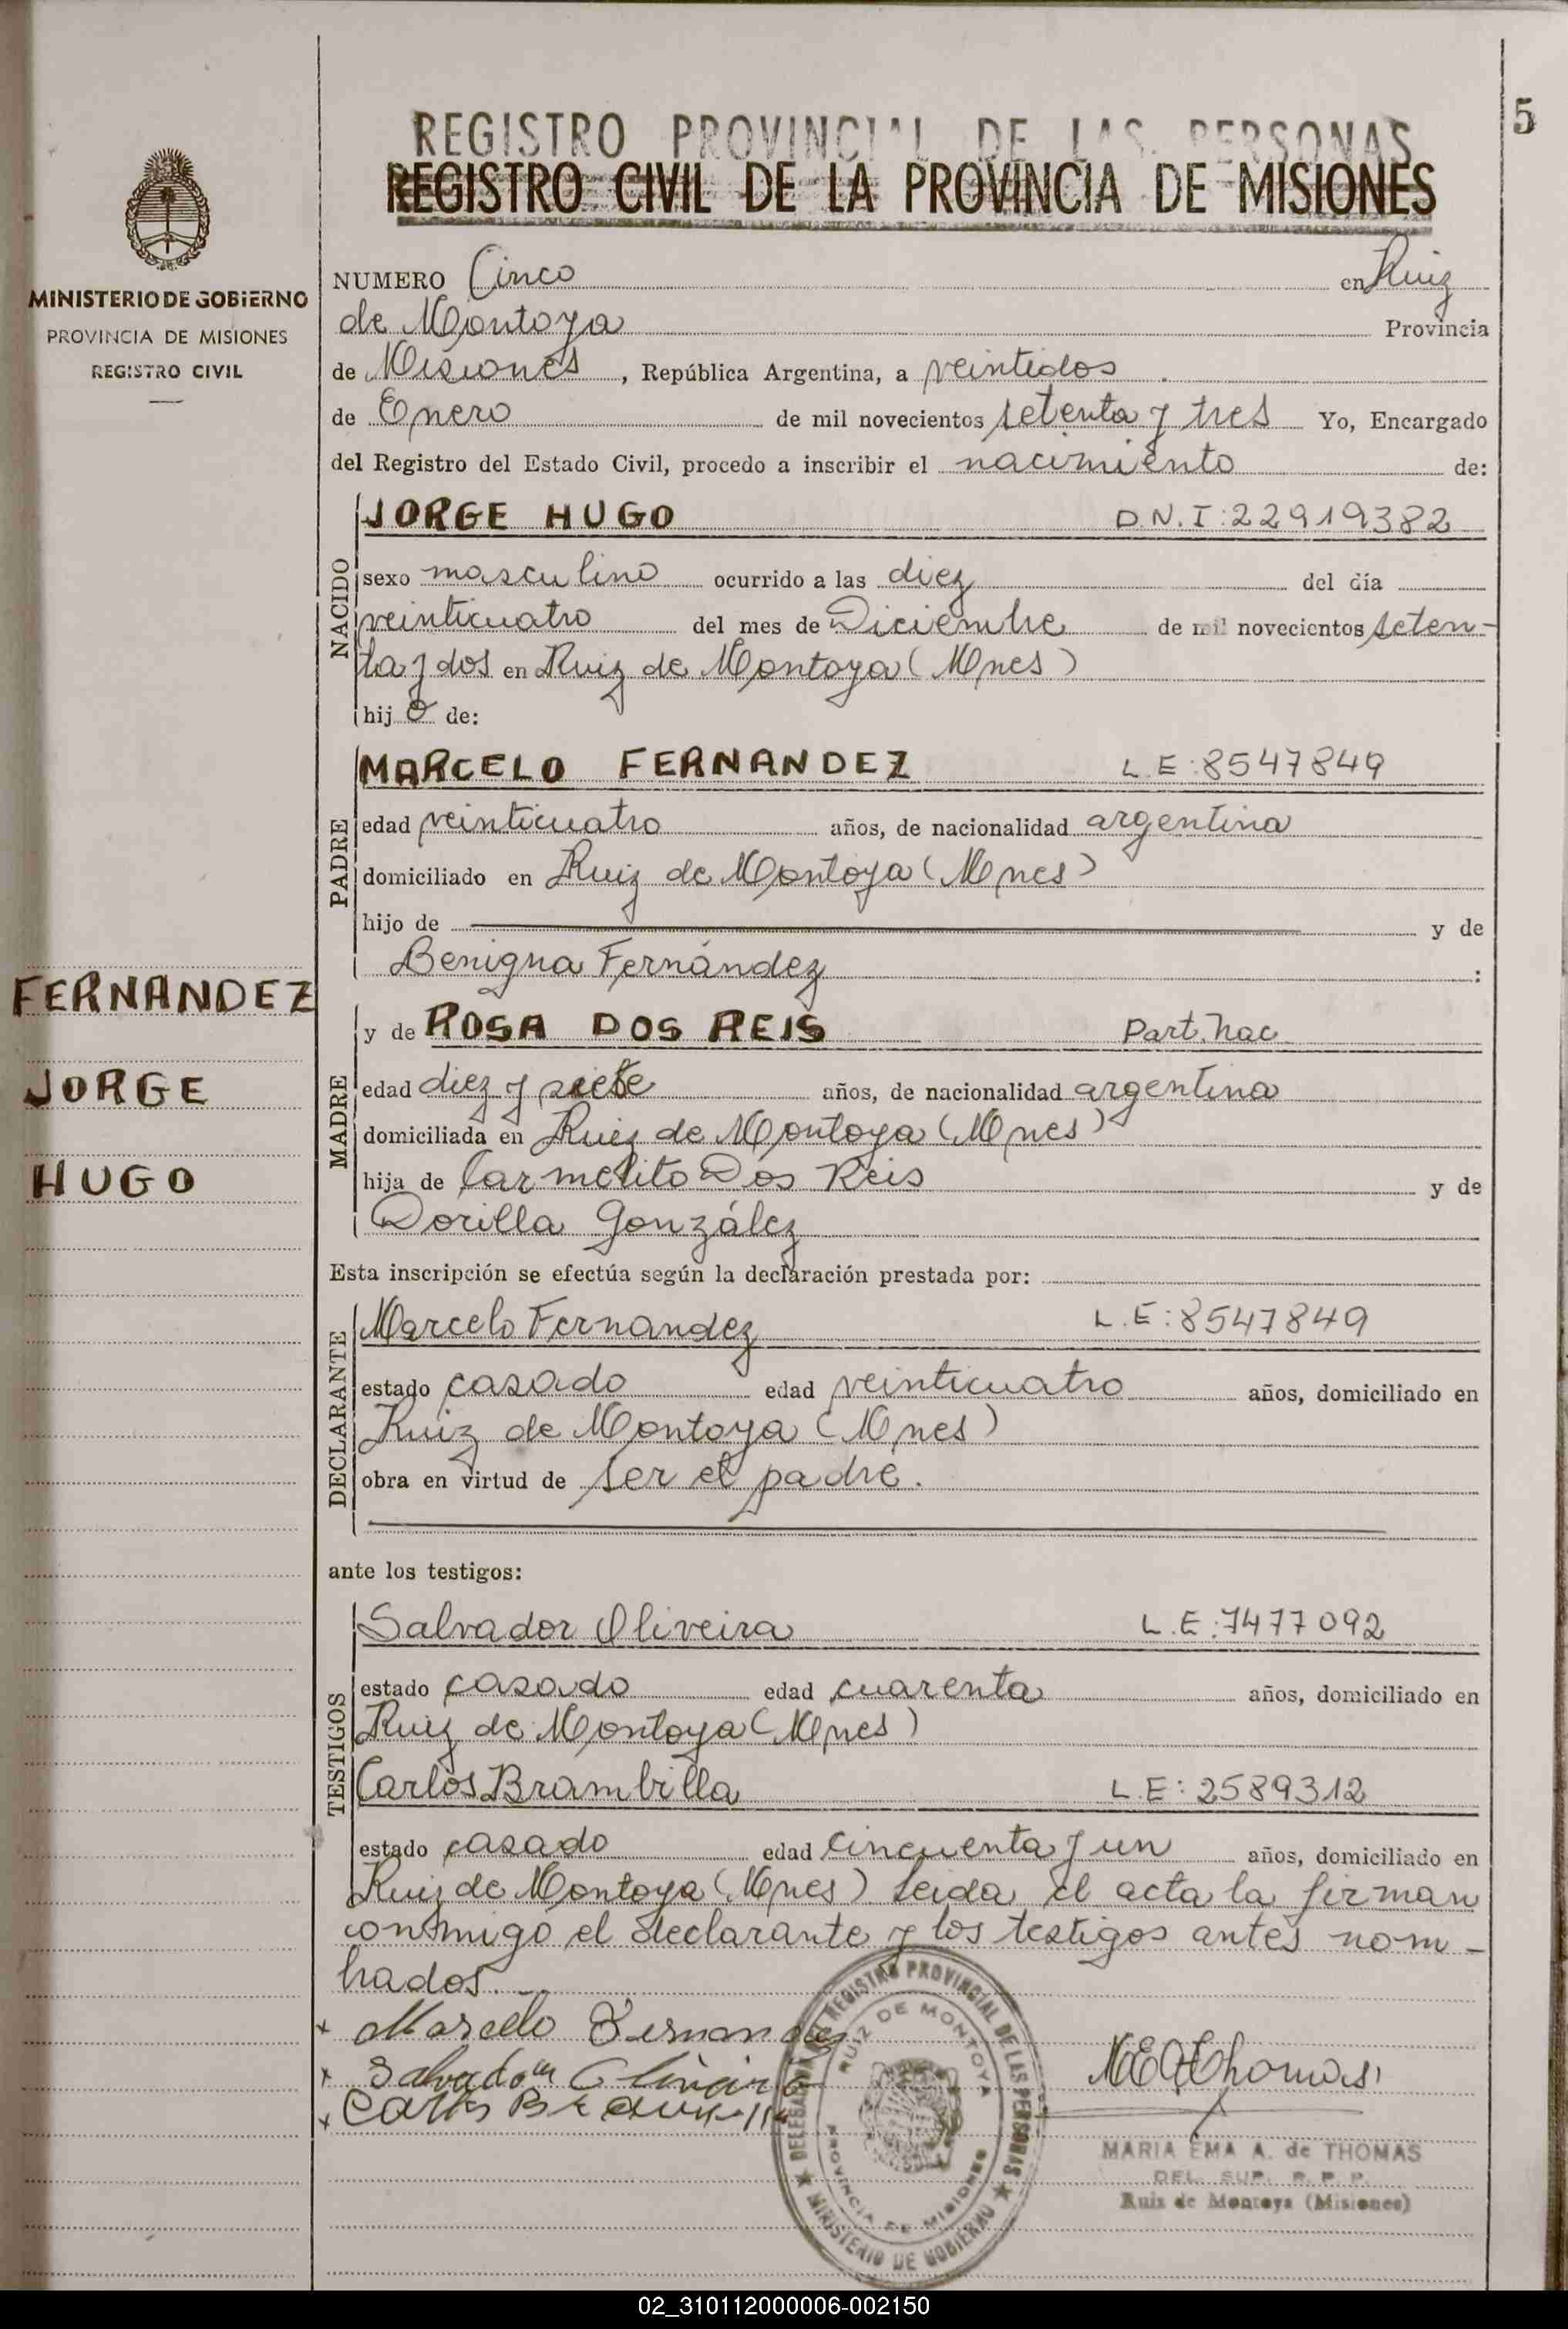 5
REGISTRO PROVINCIAL DE LAS PERSONAS
REGISTRO CIVIL DE LA PROVINCIA DE MISIONES
MINISTERIO DE GOBIERNO
PROVINCIA DE MISIONES
REGISTRO CIVIL
FERNANDEZ
JORGE
HUGO
NUMERO Cinco en Ruiz
de Montoya Provincia
de Misiones, República Argentina, a veintidos
de Enero de mil novecientos setenta y tres Yo, Encargado
del Registro del Estado Civil, procedo a inscribir el nacimiento de:
NACIDO
JORGE HUGO D.N.I:22919382
sexo masculino ocurrido a las diez del día
veinticuatro del mes de Diciembre de mil novecientos seten-
ta y dos en Ruiz de Montoya (Mnes)
hijo de:
PADRE
MARCELO FERNANDEZ L.E:8547849
edad veinticuatro años, de nacionalidad argentina
domiciliado en Ruiz de Montoya (Mnes)
hijo de y de
Benigna Fernández :
MADRE
y de ROSA DOS REIS Part. nac
edad diez y siete años, de nacionalidad argentina
domiciliada en Ruiz de Montoya (Mnes)
hija de Carmelito Dos Reis y de
Dorilla González
Esta inscripción se efectúa según la declaración prestada por:
DECLARANTE
Marcelo Fernandez L.E:8547849
estado casado edad veinticuatro años, domiciliado en
Ruiz de Montoya (Mnes)
obra en virtud de ser el padre.
ante los testigos:
TESTIGOS
Salvador Oliveira L.E:7477092
estado casado edad cuarenta años, domiciliado en
Ruiz de Montoya (Mnes)
Carlos Brambilla L.E: 2589312
estado casado edad cincuenta y un años, domiciliado en
Ruiz de Montoya (Mnes) Leida el acta la firman
conmigo el declarante y los testigos antes nom-
brados.-
x Marcelo Fernandez
x Salvador Oliveira
x Carlos Brambilla
M E A Thomas
DELEGACION DEL REGISTRO PROVINCIAL DE LAS PERSONAS
MINISTERIO DE GOBIERNO
RUIZ DE MONTOYA
PROVINCIA DE MISIONES
MARIA EMA A. de THOMAS
DEL. SUP. R. P. P.
Ruiz de Montoya (Misiones)
02_310112000006-002150